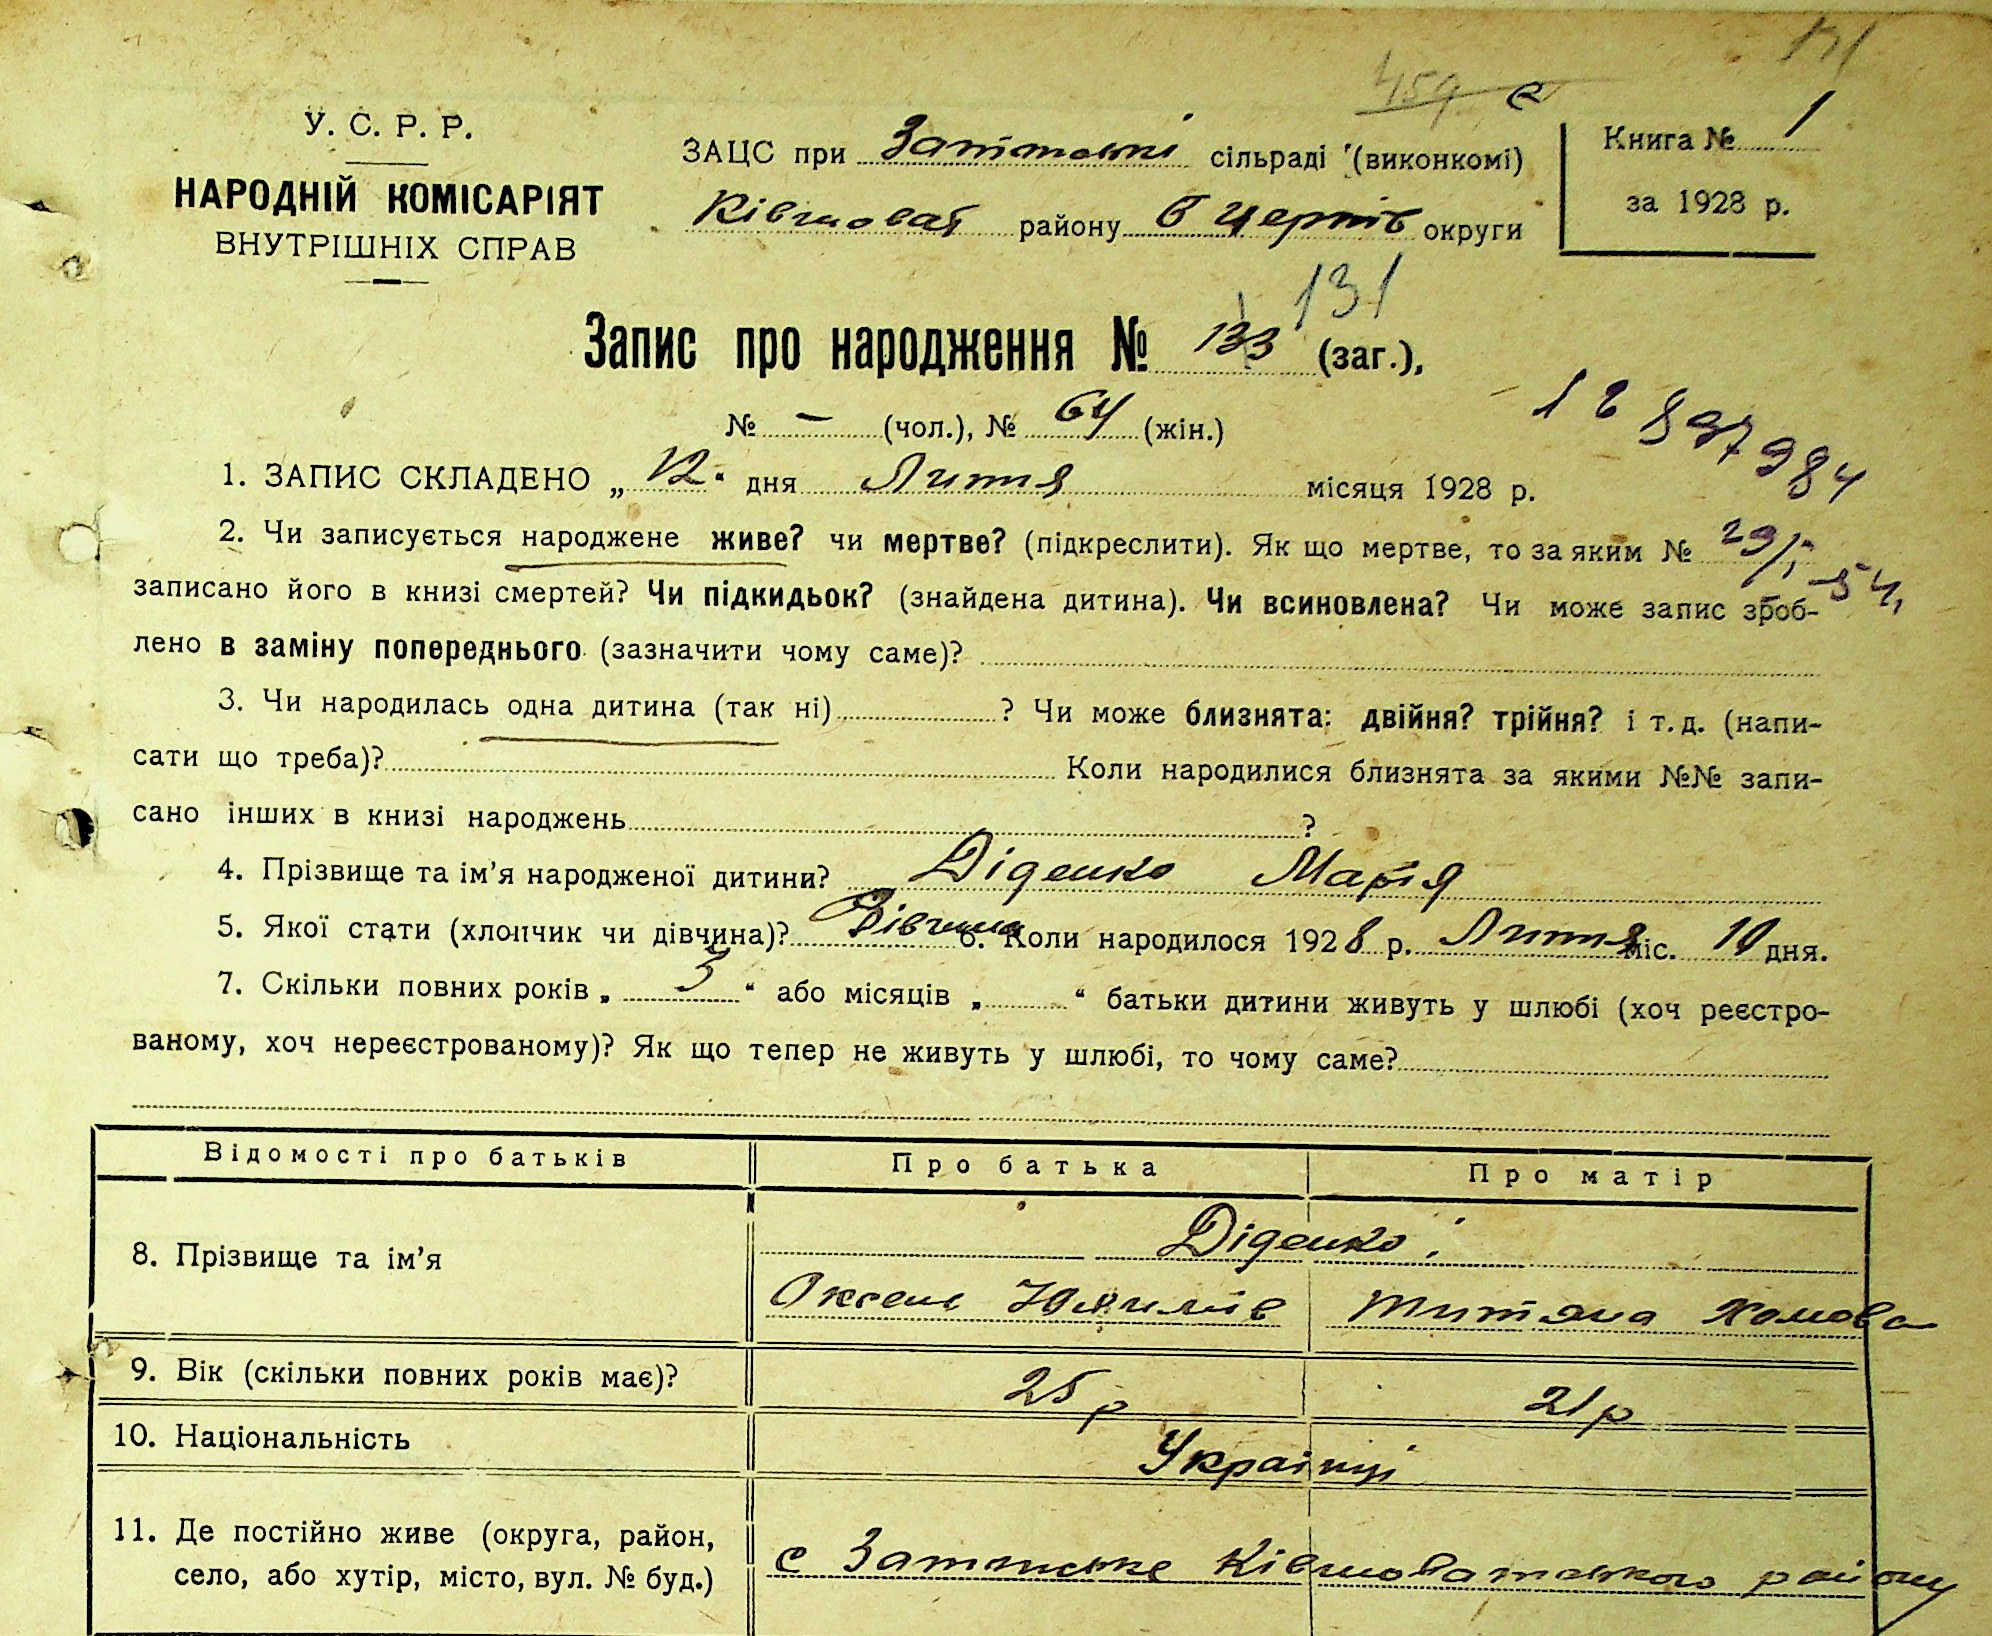 131
459
У. С. Р. Р.
НАРОДНІЙ КОМІСАРІЯТ
ВНУТРІШНІХ СПРАВ
ЗАЦС при сільраді (виконкомі)
району округи
Книга № 1
за 1928 р.
131
Запис про народження № 133 (заг.),
№ – (чол.), № 64 (жін.)
1. ЗАПИС СКЛАДЕНО „ 12 “ дня Липня місяця 1928 р.
2. Чи записується народжене живе? чи мертве? (підкреслити). Як що мертве, то за яким №
записано його в книзі смертей? Чи підкидьок? (знайдена дитина). Чи всиновлена? Чи може запис зроб-
лено в заміну попереднього (зазначити чому саме)?
3. Чи народилась одна дитина (так ні) ? Чи може близнята: двійня? трійня? і т. д. (напи-
сати що треба)? Коли народилися близнята за якими №№ запи-
сано інших в книзі народжень ?
4. Прізвище та ім’я народженої дитини? Діденко Марія
5. Якої стати (хлопчик чи дівчина)? Дівчина 6. Коли народилося 1928 р. Липня міс. 10 дня.
7. Скільки повних років „ 3 “ або місяців „ “ батьки дитини живуть у шлюбі (хоч реєстро-
ваному, хоч нереєстрованому)? Як що тепер не живуть у шлюбі, то чому саме?
Відомості про батьків Про батька Про матір
8. Прізвище та ім’я Діденко
Оксень Титяна Хомова
9. Вік (скільки повних років має)? 25 р 21 р
10. Національність Українці
11. Де постійно живе (округа, район,
село, або хутір, місто, вул. № буд.) с району